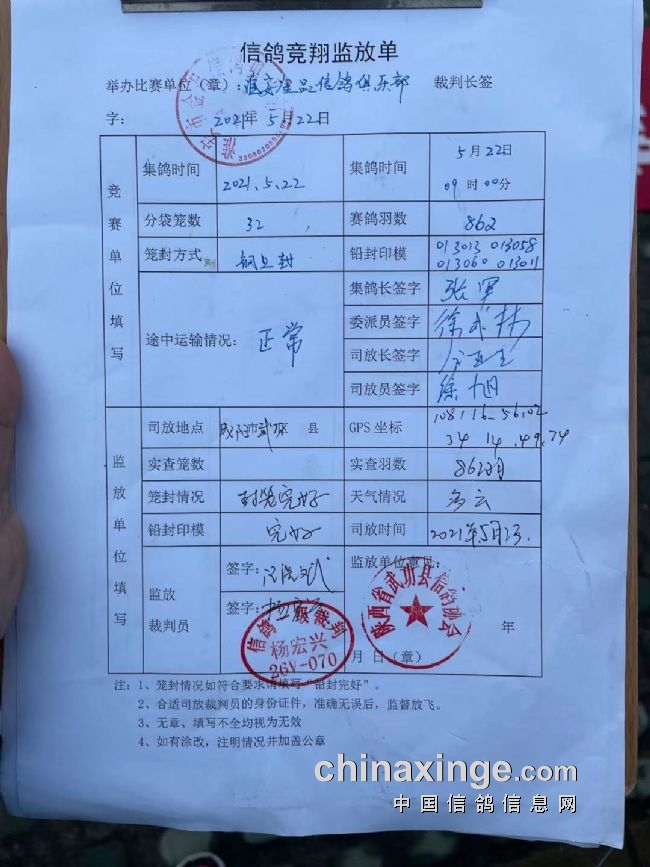 信鸽竞翔监放单
举办比赛单位（章）: 淮安 信鸽俱乐部 裁判长签
字: 2021年5月22日
竞赛单位填写
集鸽时间 2021.5.22 集鸽时间 5月22日 09时00分
分袋笼数 32 赛鸽羽数 862
笼封方式 钢丝封 铅封印模 013013 013058
013060 013011
途中运输情况: 正常
集鸽长签字 张军
委派员签字 徐
司放长签字
司放员签字 徐旭
监放单位填写
司放地点 咸阳市武功县 GPS坐标 108.116.56.02
34 14.49.74
实查笼数 实查羽数 862羽
笼封情况 封装完好 天气情况 多云
铅封印模 完好 司放时间 2021年5月23.
监放裁判员
签字:
签字:
监放单位意见:
年
月 日（章）
信鸽一级裁判
杨宏兴
26V-070
陕西省武功县信鸽协会
注: 1、笼封情况如符合要求请填写“铅封完好”。
2、合适司放裁判员的身份证件，准确无误后，监督放飞。
3、无章、填写不全均视为无效
4、如有涂改，注明情况并加盖公章
chinaxinge.com
中国信鸽信息网